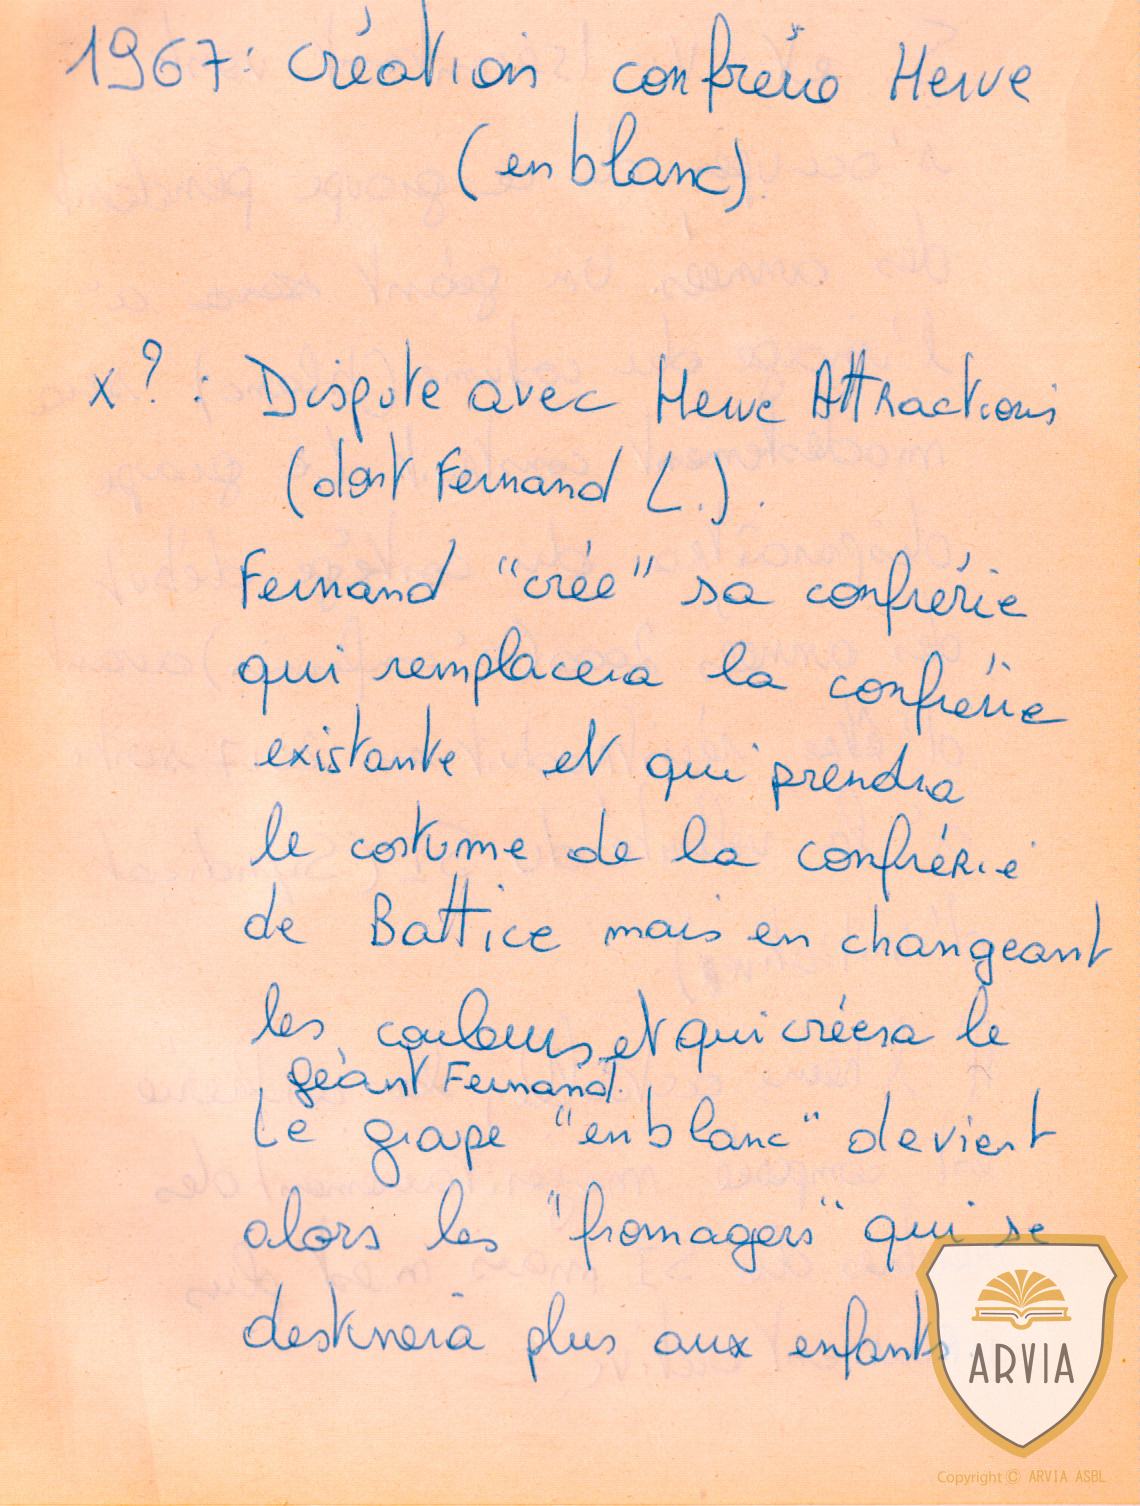 1967: création confrérie Herve
(en blanc)
x? : Dispute avec Herve Attractions
(dont Fernand L.).
Fernand "crée" sa confrérie
qui remplacera la confrérie
existante et qui prendra
le costume de la confrérie
de Battice mais en changeant
les couleurs et qui créera le
géant Fernand.
Le groupe "en blanc" devient
alors les "fromagers" qui se
destinera plus aux enfants.
ARVIA
Copyright © ARVIA ASBL